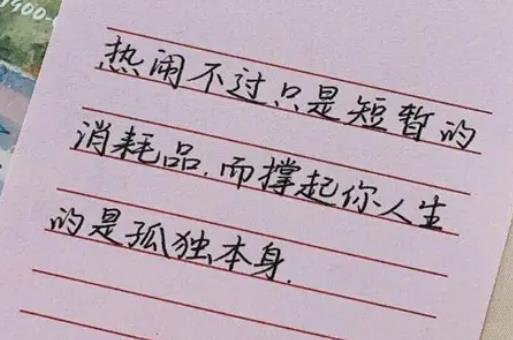 热闹不过只是短暂的
消耗品.而撑起你人生
的是孤独本身.